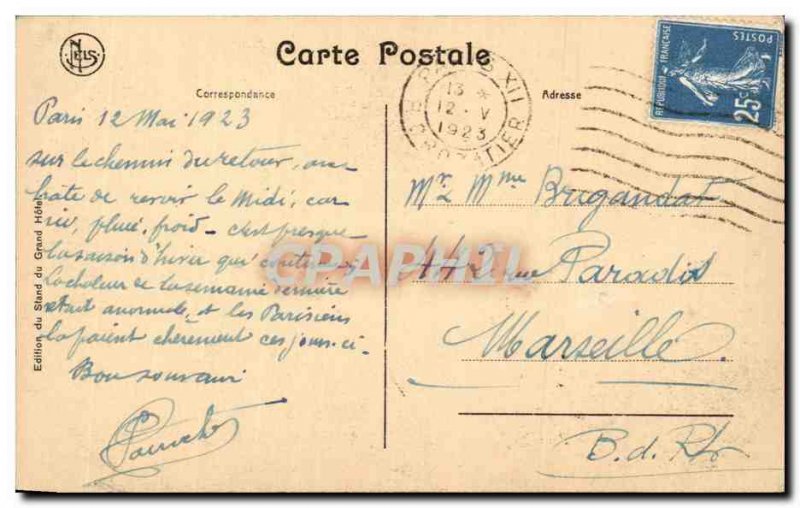 NELS
Carte Postale
Correspondance
Adresse
REPUBLIQUE FRANÇAISE
POSTES
25c
PARIS XII
13 *
12 - V
1923
R. CROZATIER
Paris 12 Mai 1923
sur le chemin du retour, on a
hâte de revoir le Midi; car
ici, pluie, froid - c'est presque
la saison d'hiver qui continue;
La chaleur de la semaine dernière
était anormale, et les Parisiens
la paient chèrement ces jours-ci.
Bon souvenir
Mr & Mme Brugandat
rue Paradis
Marseille
B. d. Rh
Edition du Stand du Grand Hôtel
CPAPHIL